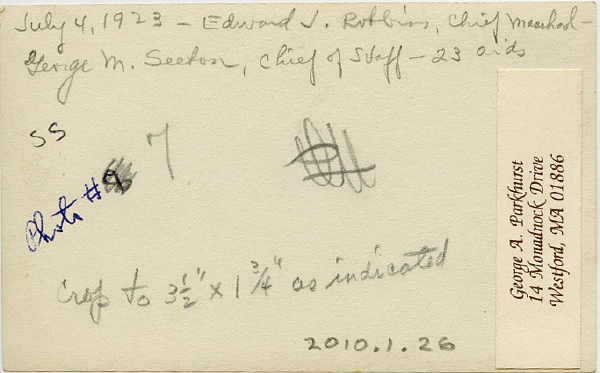 July 4, 1923 - Edward J. Robbins, Chief Marshal -
George M. Seeton, Chief of Staff - 23 aids
SS
7
Photo #9
Crop to 3 1/2" x 1 3/4" as indicated
2010.1.26
George A. Parkhurst
14 Monadnock Drive
Westford, MA 01886